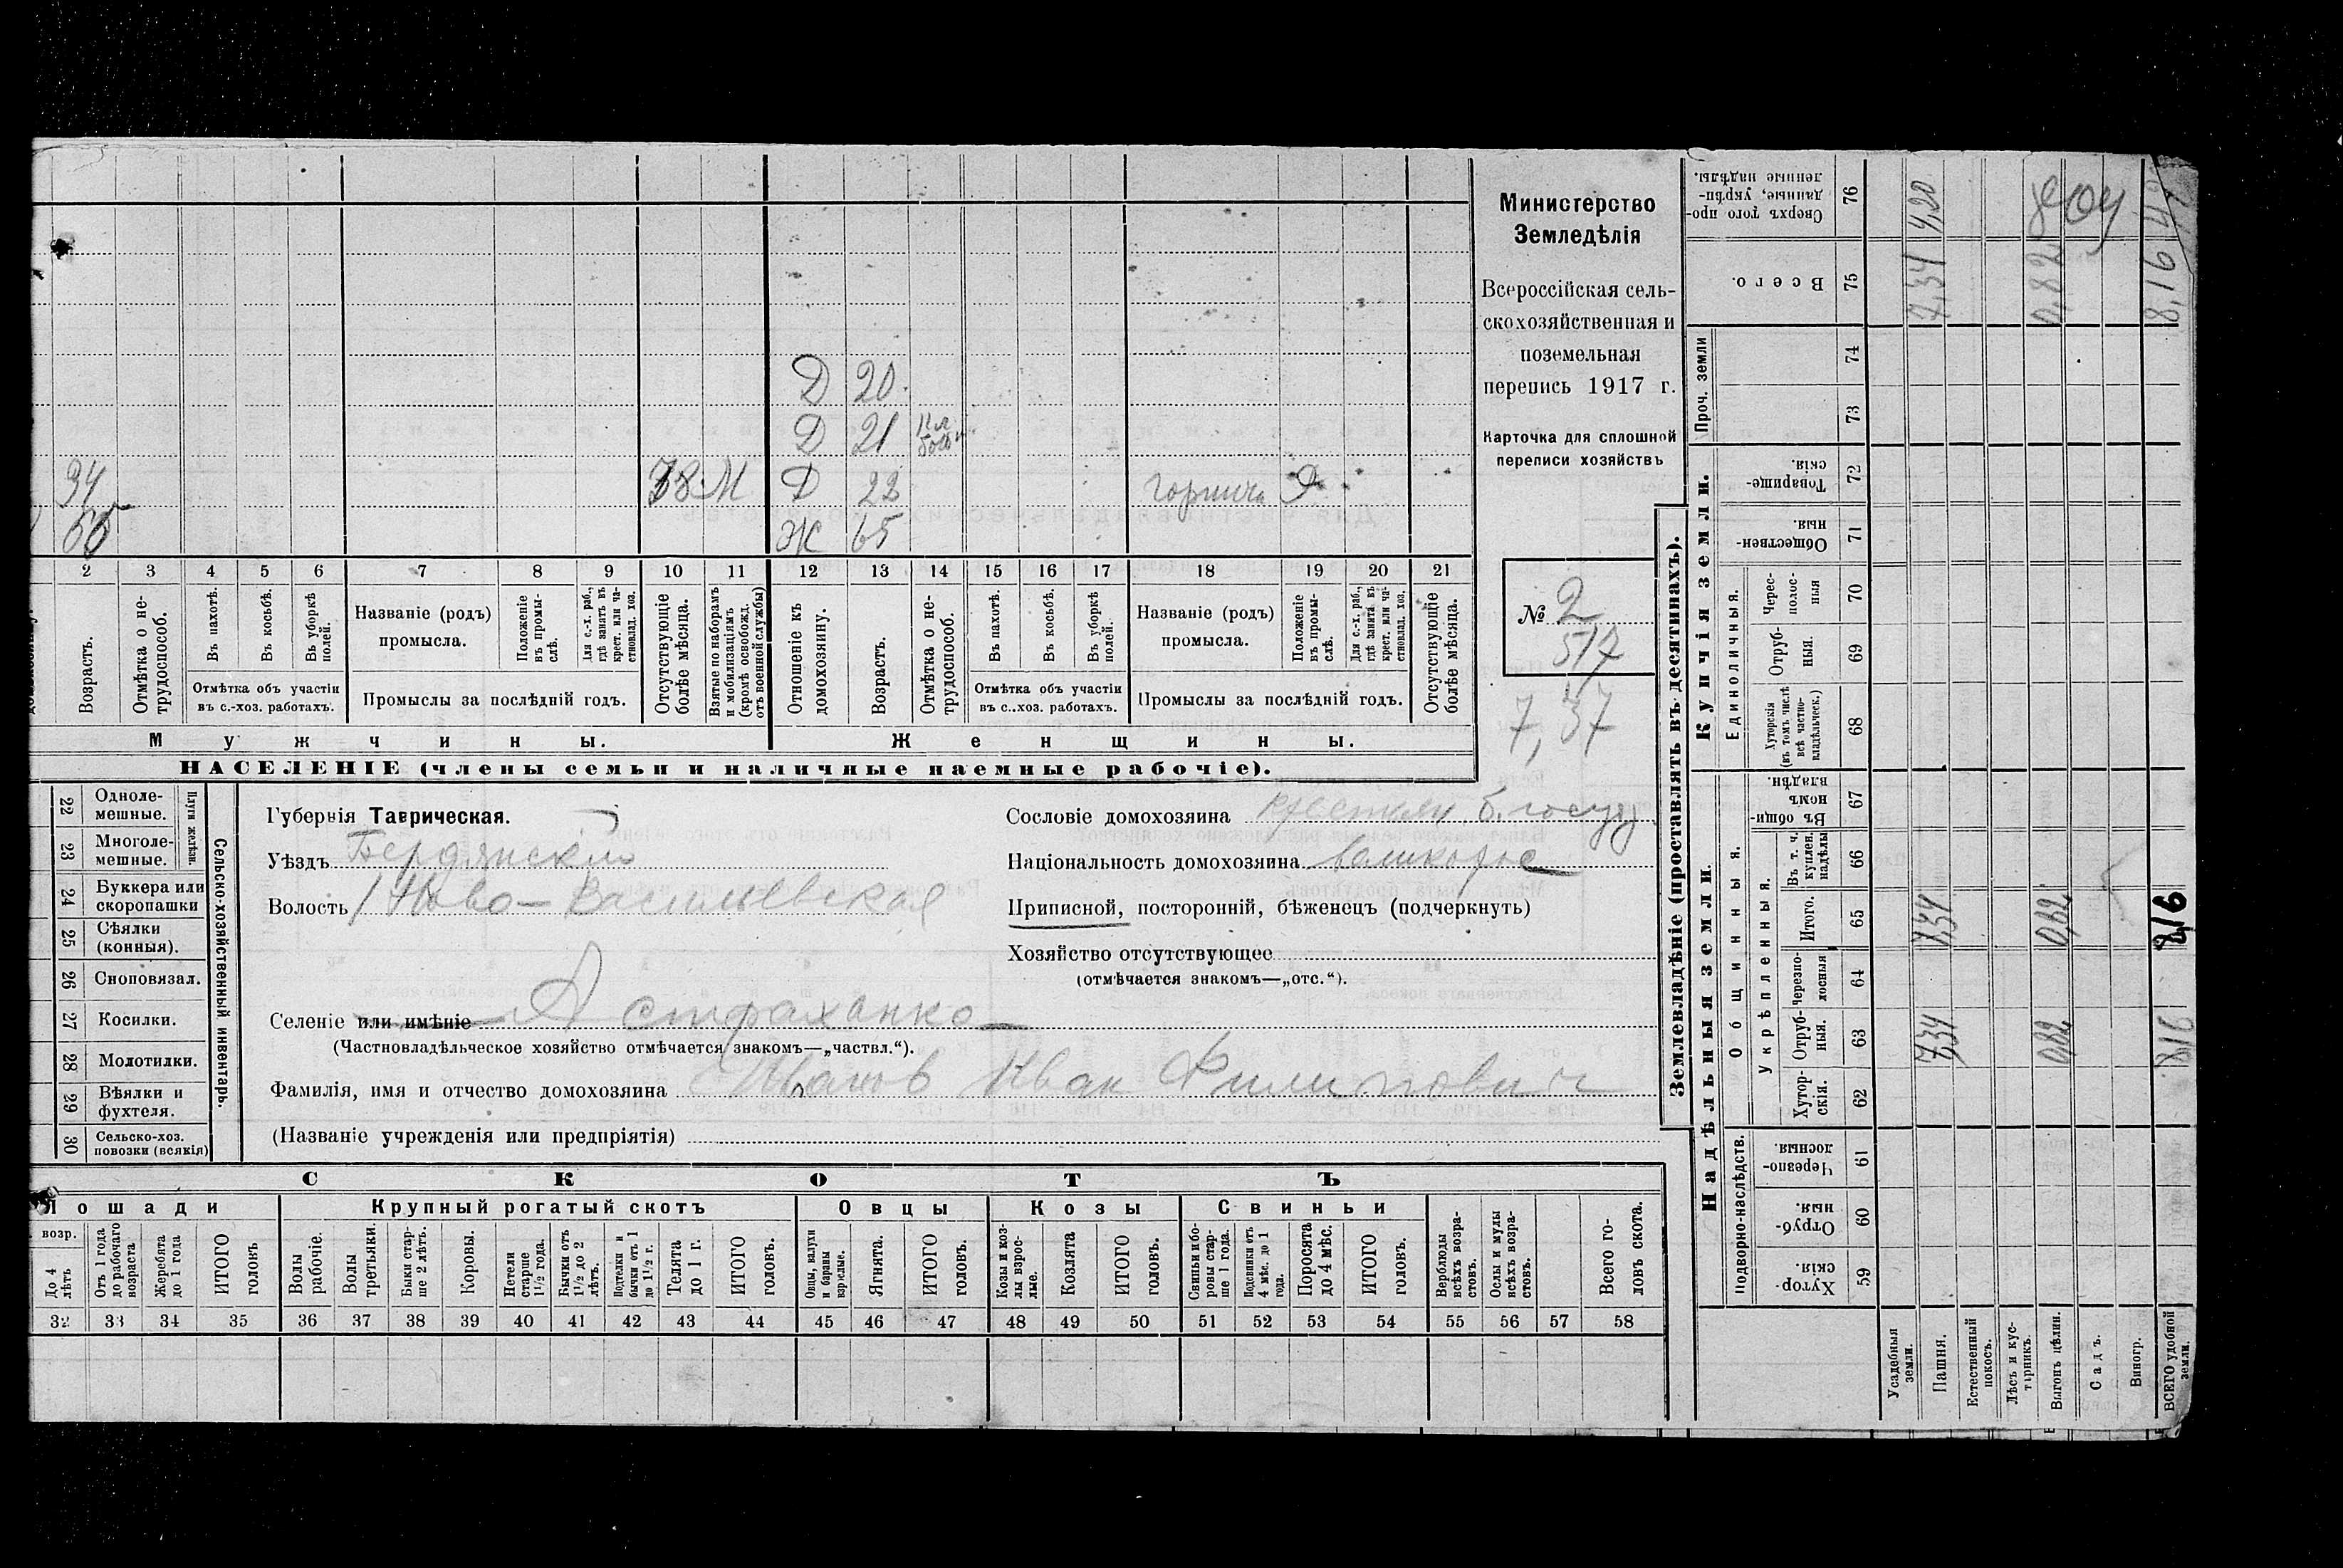 Министерство
Земледѣлія
Всероссійская сель-
скохозяйственная и
поземельная
перепись 1917 г.
Карточка для сплошной
переписи хозяйствъ
№ 2
517
7,37
Д 20
Д 21
94 М Д 22
Ж 65
2 3 4 5 6 7 8 9 10 11 12 13 14 15 16 17 18 19 20 21
Возрастъ.
Отмѣтка о не-
трудоспособ.
Въ пахотѣ.
Въ косьбѣ.
Въ уборкѣ
полей.
Отмѣтка объ участіи
въ с.-хоз. работахъ.
Названіе (родъ)
промысла.
Положеніе
въ промы-
слѣ.
Для с.-х. раб.,
гдѣ занятъ въ
крест. или ча-
стновлад. хоз.
Промыслы за послѣдній годъ.
Отсутствующіе
болѣе мѣсяца.
Взятые по наборамъ
и мобилизаціямъ
(кромѣ освобожд.
отъ военной службы)
Отношеніе къ
домохозяину.
Возрастъ.
Отмѣтка о не-
трудоспособ.
Въ пахотѣ.
Въ косьбѣ.
Въ уборкѣ
полей.
Отмѣтка объ участіи
въ с.-хоз. работахъ.
Названіе (родъ)
промысла.
Положеніе
въ промы-
слѣ.
Для с.-х. раб.,
гдѣ занята въ
крест. или ча-
стновлад. хоз.
Промыслы за послѣдній годъ.
Отсутствующіе
болѣе мѣсяца.
Мужчины.
Женщины.
НАСЕЛЕНІЕ (члены семьи и наличные наемные рабочіе).
22 Одноле-
мешные.
23 Многоле-
мешные.
Плуги желѣзн.
24 Буккера или
скоропашки
25 Сѣялки
(конныя).
26 Сноповязал.
27 Косилки.
28 Молотилки.
29 Вѣялки и
фухтеля.
30 Сельско-хоз.
повозки (всякія)
Сельско-хозяйственный инвентарь.
Губернія Таврическая.
Уѣздъ Бердянскій
Волость Ново-Васильевская
Селеніе или имѣніе Астраханка
(Частновладѣльческое хозяйство отмѣчается знакомъ—„частвл.“).
Фамилія, имя и отчество домохозяина Ивановъ Иван Филиппович
(Названіе учрежденія или предпріятія)
Сословіе домохозяина
Національность домохозяина
Приписной, посторонній, бѣженецъ (подчеркнуть)
Хозяйство отсутствующее
(отмѣчается знакомъ—„отс.“).
СКОТЪ
Лошади
возр.
До 4
лѣтъ
Отъ 1 года
до рабочаго
возраста
Жеребята
до 1 года
ИТОГО
головъ
Крупный рогатый скотъ
Волы
рабочіе.
Волы
третьяки.
Быки стар-
ше 2 лѣтъ.
Коровы.
Нетели
старше
1 1/2 года.
Бычки отъ
1 1/2 до 2
лѣтъ.
Подтелки и
бычки отъ 1
до 1 1/2 г.
Телята
до 1 г.
ИТОГО
головъ.
Овцы
Овцы, валухи
и бараны
взрослые.
Ягнята.
ИТОГО
головъ.
Козы
Козы и коз-
лы взрос-
лые.
Козлята
ИТОГО
головъ.
Свиньи
Свиньи и бо-
ровы стар-
ше 1 года.
Подсвинки отъ
4 мѣс. до 1
года.
Поросята
до 4 мѣс.
ИТОГО
головъ.
Верблюды
всѣхъ возра-
стовъ.
Ослы и мулы
всѣхъ возра-
стовъ.
Всего го-
ловъ скота.
32 33 34 35 36 37 38 39 40 41 42 43 44 45 46 47 48 49 50 51 52 53 54 55 56 57 58
Землевладѣніе (проставлять въ десятинахъ).
Купчія земли.
Надѣльныя земли.
Проч. земли
Единоличныя.
Общинныя.
Укрѣпленныя.
Подворно-наслѣдств.
Сверхъ того про-
данные, укрѣп-
ленные надѣлы. 76
Всего. 75
74
73
Товарище-
скія. 72
Обществен-
ныя. 71
Черес-
полос-
ныя 70
Отруб-
ныя. 69
Хуторскія
(въ томъ числѣ
всѣ частно-
владѣльческ.) 68
Въ общин-
номъ
владѣн. 67
Въ т. ч.
куплен.
надѣлы 66
Итого. 65
Черезпо-
лосныя 64
Отруб-
ныя. 63
Хутор-
скія. 62
Черезпо-
лосныя 61
Отруб-
ныя. 60
Хутор-
скія. 59
Усадебныя
земли.
Пашня. 7,34 7,34 7,34 4,20
Естественный
покосъ.
Лѣсъ и кус-
тарникъ.
Выгонъ цѣлин. 0,82 0,82 0,82
Садъ.
Виногр.
ВСЕГО удобной
земли. 8,16 8,16 8,16